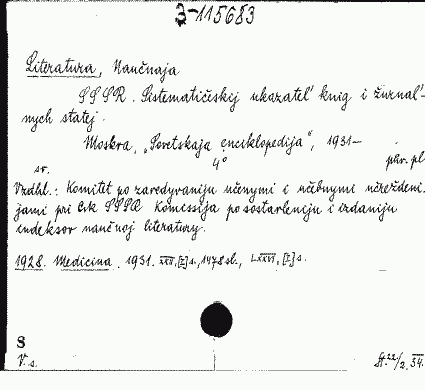 3-115683
Literatura, Naučnaja
SSSR. Sistematičeskij ukazatel' knig i žurnal'-
nych statej.
Moskva, „Sovetskaja enciklopedija", 1931-
4° pův. pl
sv.
Vzdhl.: Komitet po zaredyvaniju učenymi i učebnymi učreždeni-
jami pri Cik SSSR Komissija po sostavleniju i izdaniju
indeksov naučnoj literatury.
1928. Medicina. 1931. XXX,[I]s., 1478 sl., LXXVI, [I] s.
8
V. s. St. 22/2. 34.